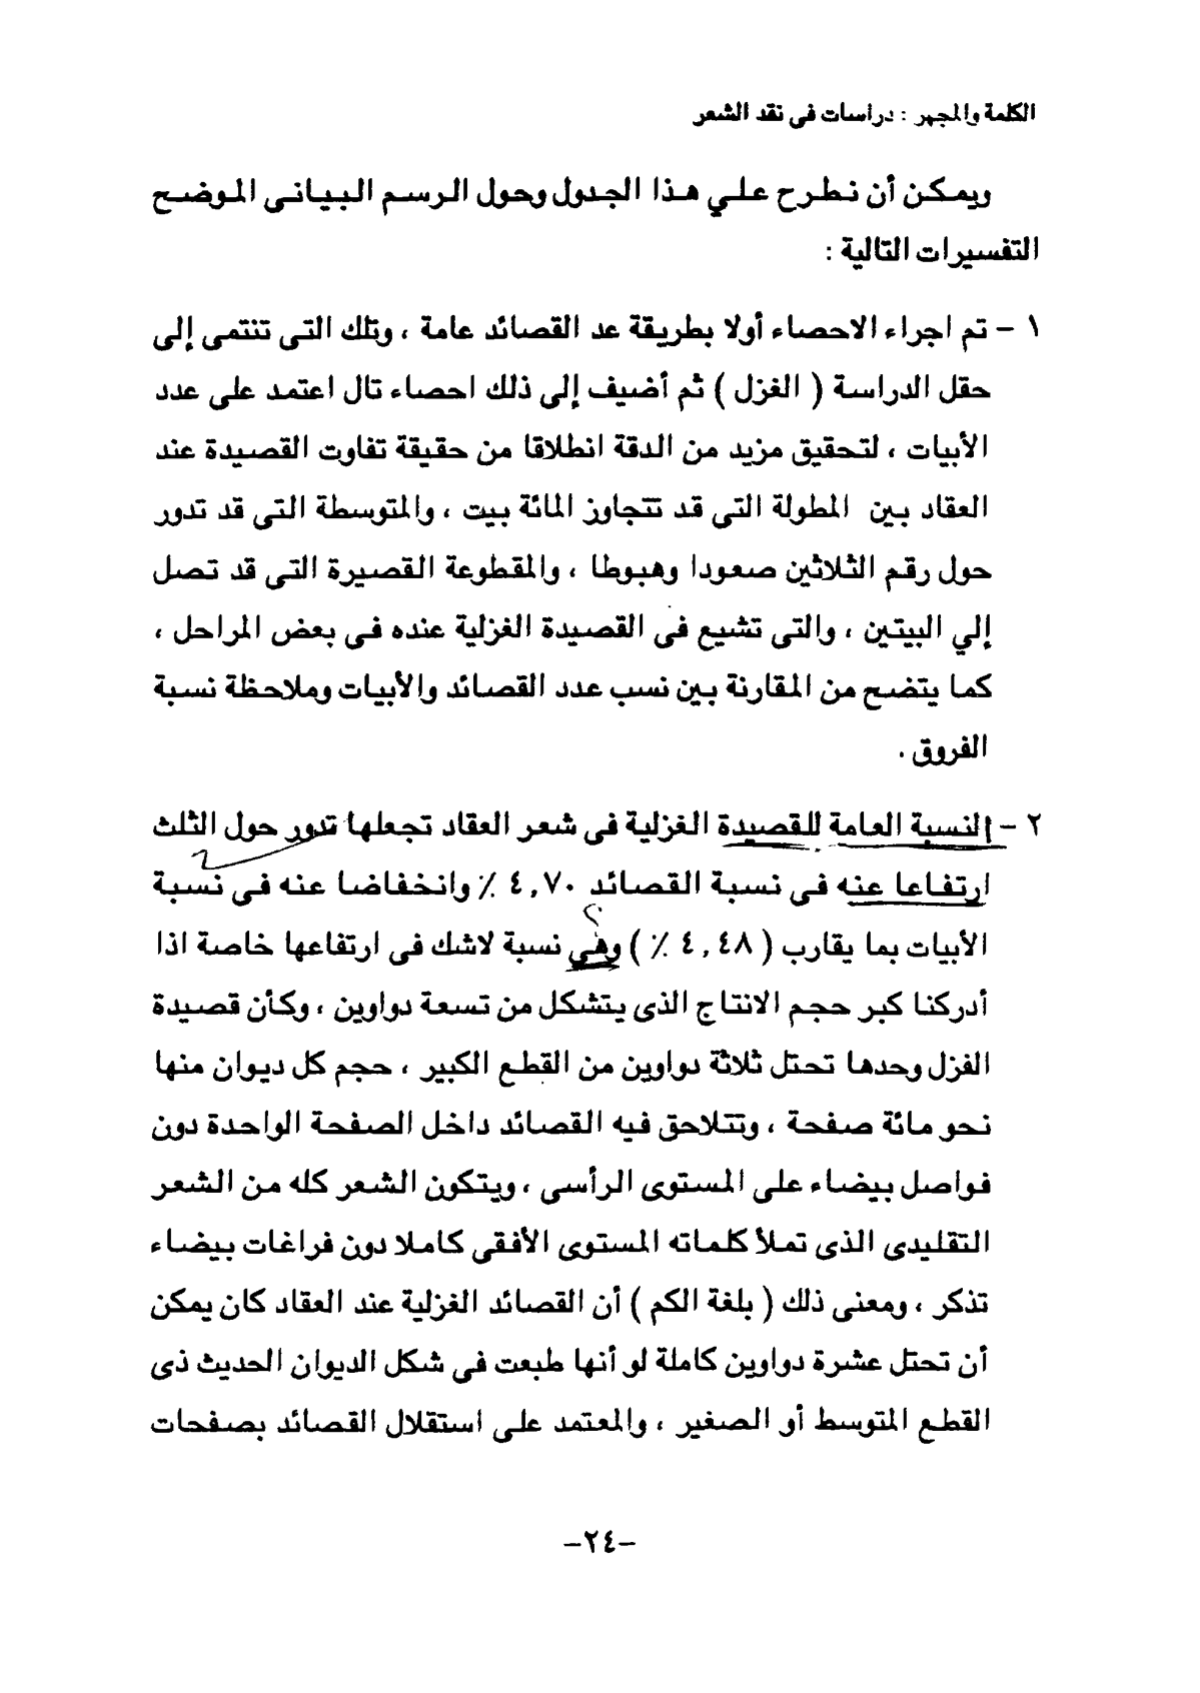 الكلمة والمجهر : دراسات فى نقد الشعر
ويمكن أن نطرح علي هذا الجدول وحول الرسم البيانى الموضح
التفسيرات التالية :
١ – تم اجراء الاحصاء أولا بطريقة عد القصائد عامة ، وتلك التى تنتمى إلى
حقل الدراسة ( الغزل ) ثم أضيف إلى ذلك احصاء تال اعتمد على عدد
الأبيات ، لتحقيق مزيد من الدقة انطلاقا من حقيقة تفاوت القصيدة عند
العقاد بين المطولة التى قد تتجاوز المائة بيت ، والمتوسطة التى قد تدور
حول رقم الثلاثين صعودا وهبوطا ، والمقطوعة القصيرة التى قد تصل
إلي البيتين ، والتى تشيع فى القصيدة الغزلية عنده فى بعض المراحل ،
كما يتضح من المقارنة بين نسب عدد القصائد والأبيات وملاحظة نسبة
الفروق .
٢ – النسبة العامة للقصيدة الغزلية فى شعر العقاد تجعلها تدور حول الثلث
ارتفاعا عنه فى نسبة القصائد ٤,٧٠ ٪ وانخفاضا عنه فى نسبة
الأبيات بما يقارب ( ٤,٤٨ ٪ ) وهي نسبة لاشك فى ارتفاعها خاصة اذا
أدركنا كبر حجم الانتاج الذى يتشكل من تسعة دواوين ، وكأن قصيدة
الغزل وحدها تحتل ثلاثة دواوين من القطع الكبير ، حجم كل ديوان منها
نحو مائة صفحة ، وتتلاحق فيه القصائد داخل الصفحة الواحدة دون
فواصل بيضاء على المستوى الرأسى ، ويتكون الشعر كله من الشعر
التقليدى الذى تملأ كلماته المستوى الأفقى كاملا دون فراغات بيضاء
تذكر ، ومعنى ذلك ( بلغة الكم ) أن القصائد الغزلية عند العقاد كان يمكن
أن تحتل عشرة دواوين كاملة لو أنها طبعت فى شكل الديوان الحديث ذى
القطع المتوسط أو الصغير ، والمعتمد على استقلال القصائد بصفحات
–٢٤–